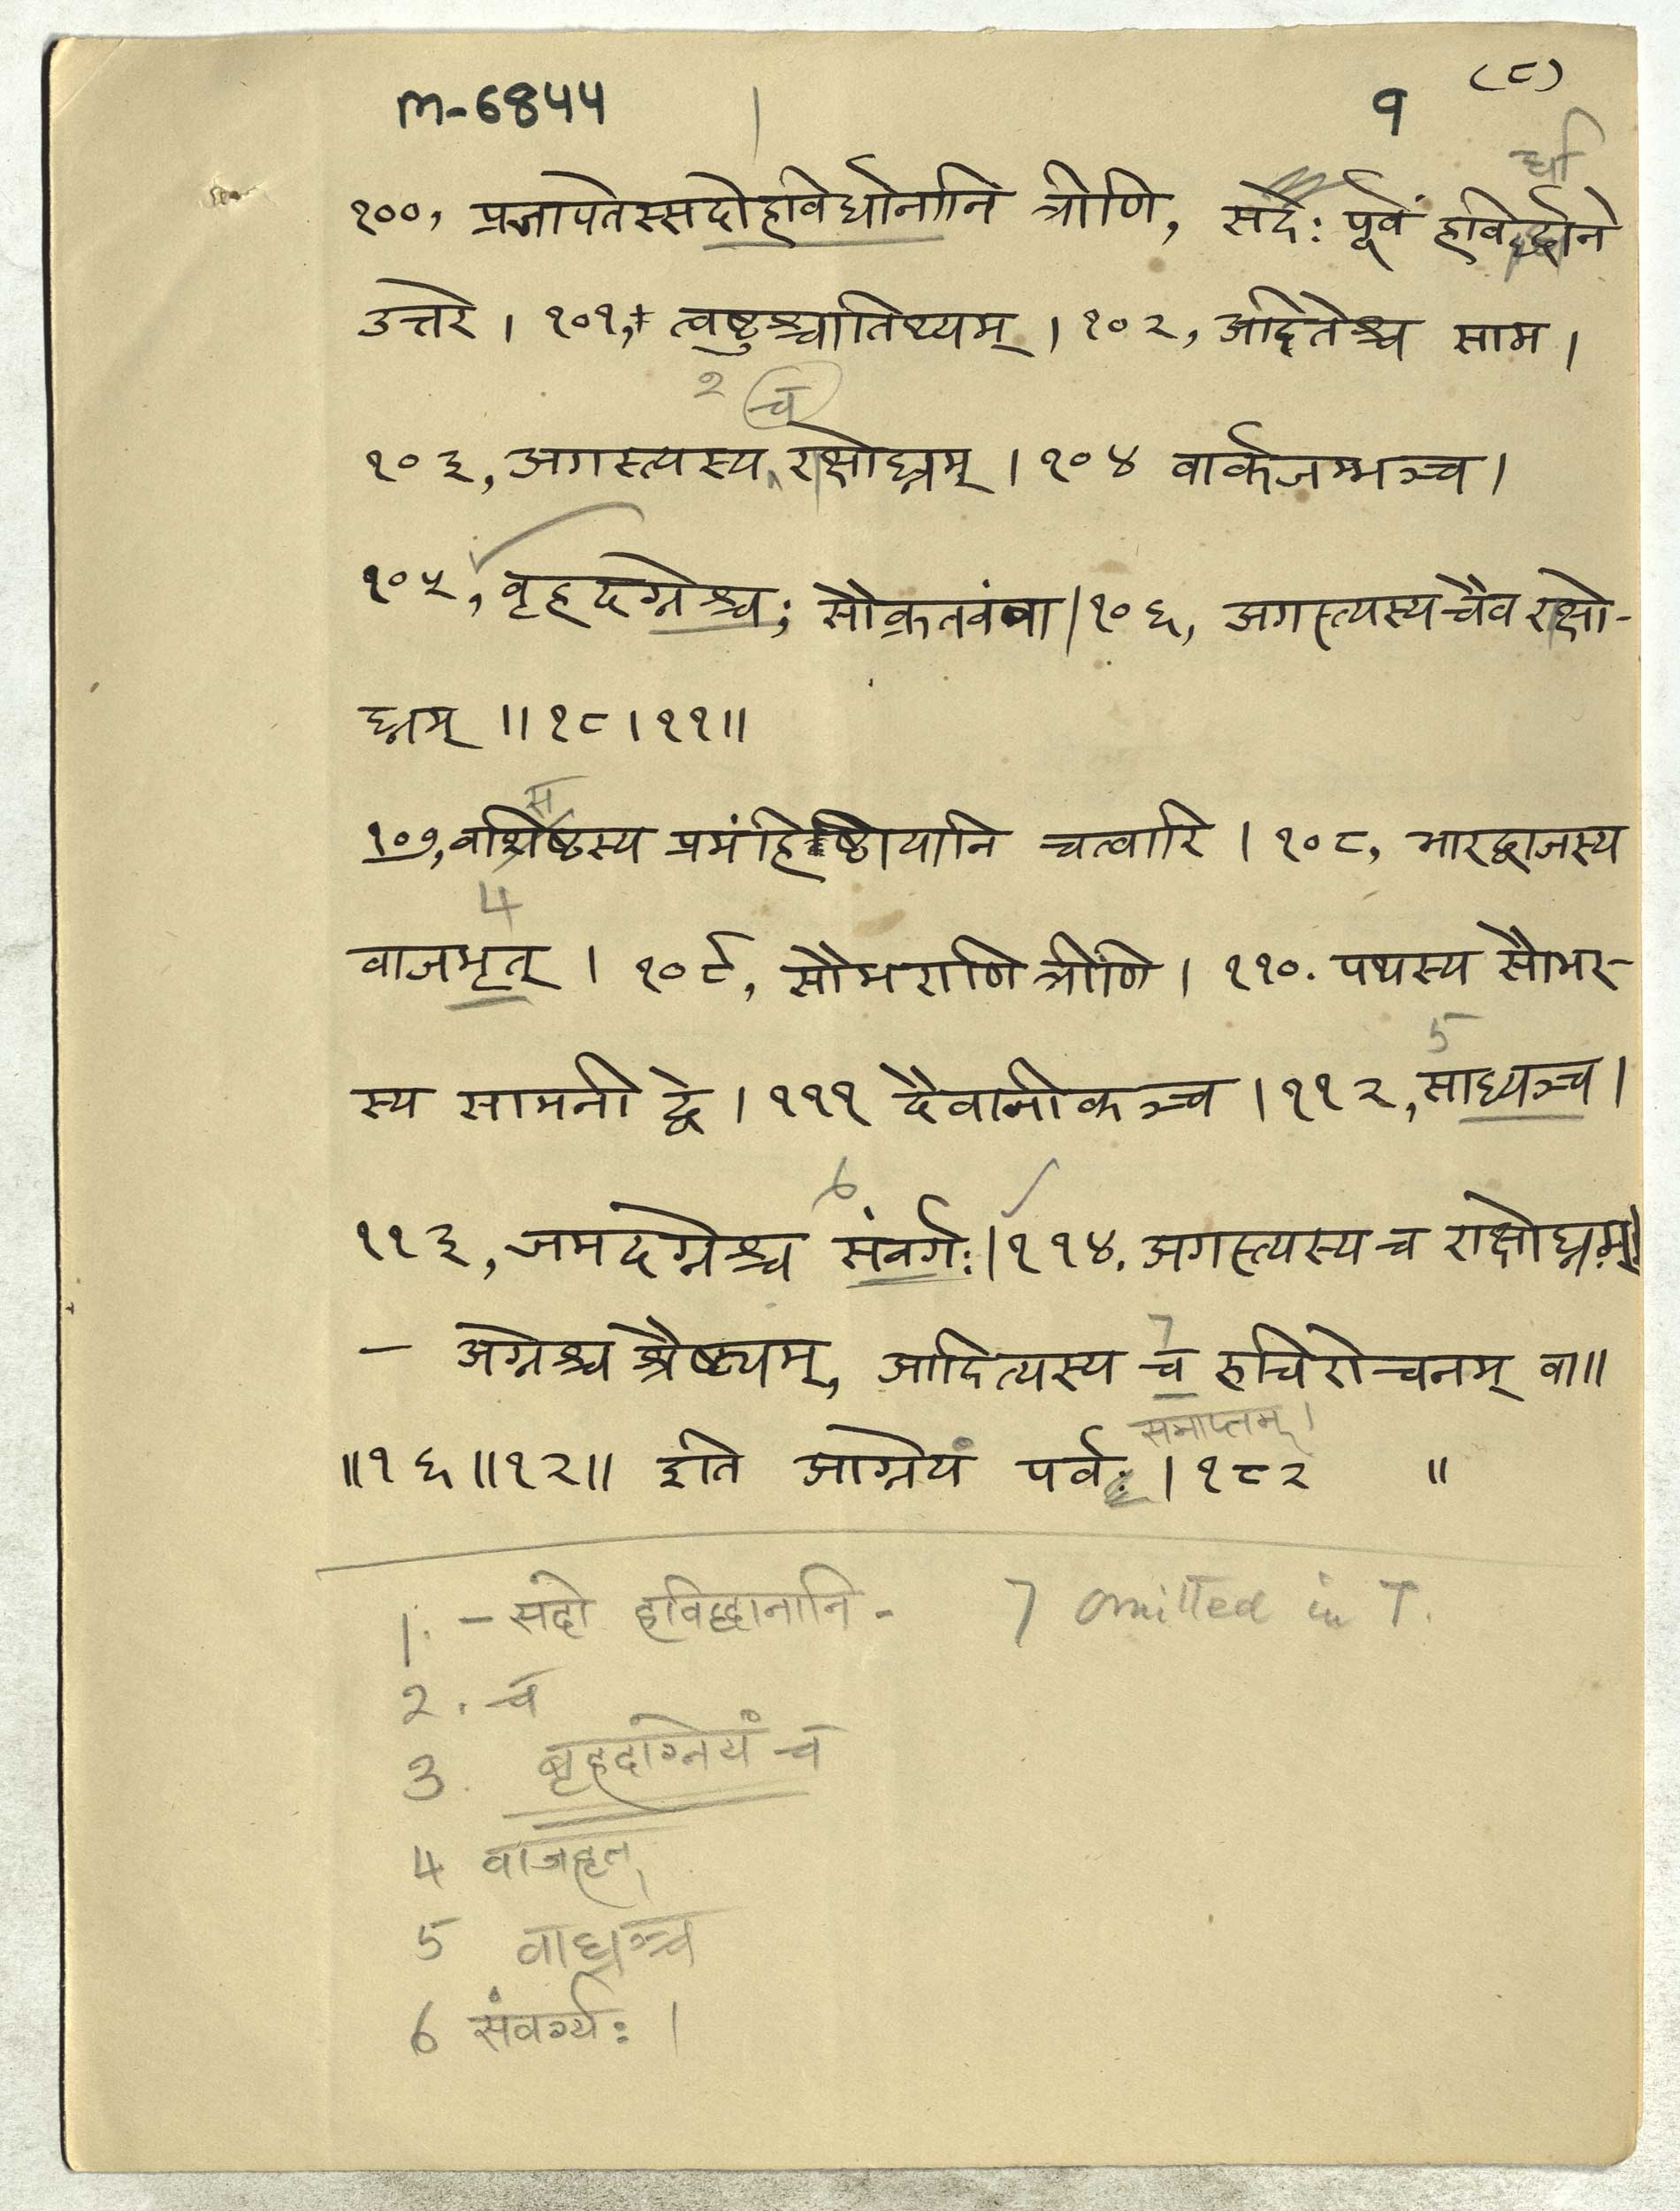 m-6844 १ (८)
र्धा
१००, प्रजापतेस्सदोहविर्धानानि त्रीणि, सदः पूर्वं हविर्द्धाने
उत्तरे । १०१, त्वष्टुश्चातिथ्यम् । १०२, अदितेश्च साम ।
२ च
१०३, अगस्त्यस्य राक्षोघ्नम् । १०४ वार्कजम्भञ्च ।
१०५, बृहदग्नेश्च; सौक्रतवंवा । १०६, अगस्त्यस्य चैव राक्षो-
घ्नम् ॥ १८ । ११ ॥
स
१०७, वाशिष्ठस्य प्रमंहिष्ठीयानि चत्वारि । १०८, भारद्वाजस्य
4
वाजभृत् । १०९, सौभराणि त्रीणि । ११०. पथस्य सौभर-
5
स्य सामनी द्वे । १११ दैवानीकञ्च । ११२, साध्यञ्च ।
6
११३, जमदग्नेश्च संवर्गः । ११४. अगस्त्यस्य च राक्षोघ्नम् ।
7
- अग्नेश्च श्रैष्ठ्यम्, आदित्यस्य च रुचिरोचनम् वा ॥
समाप्तम् ।
॥ १६ ॥ १२ ॥ इति आग्नेयं पर्व । १८२ ॥
1. - सदो हविर्द्धानानि - 7 omitted in T.
2. च
3. बृहदाग्नेयं च
4 वाजहृत्
5 वाध्र्यञ्च
6 संवर्ग्यः ।